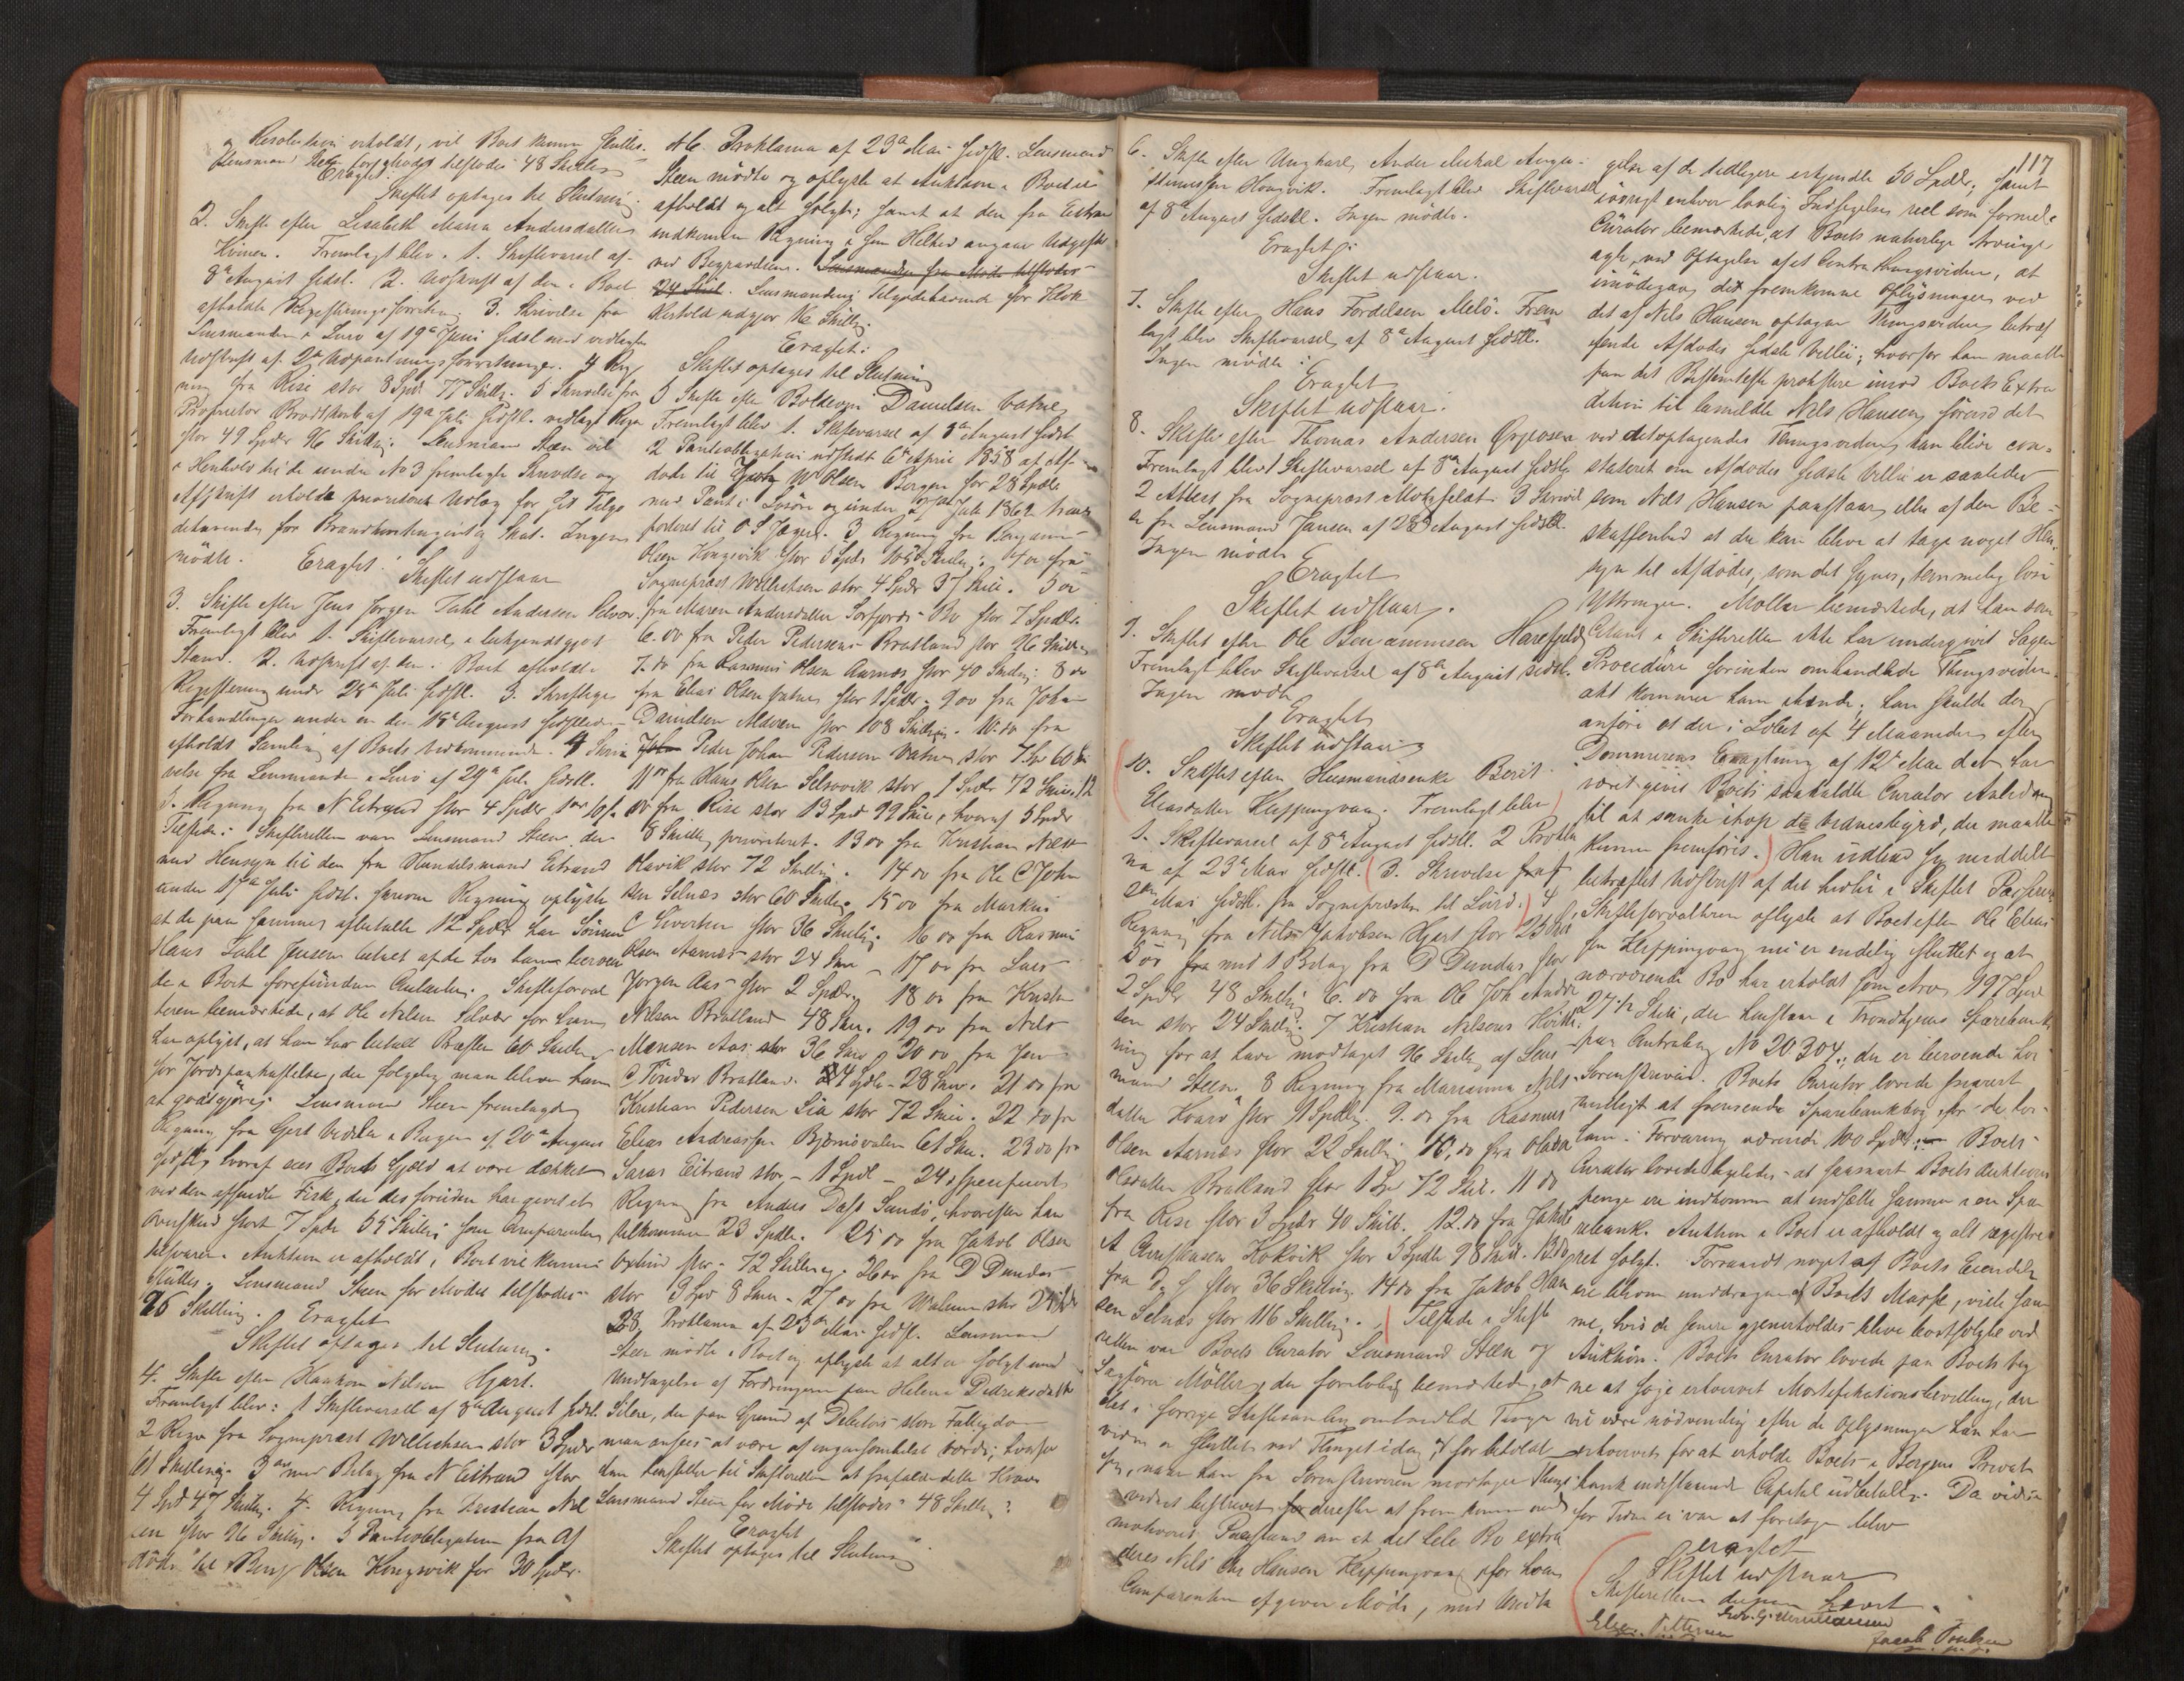 Resolution erholdt, vil Boet kunne sluttes.
Lensmand Steen for Møde tilstodes 48 Skilling
Eragtet:
Skiftet optages til Slutning.
2. Skifte efter Lisabeth Maria Andersdatter
Kvinen. Fremlagt blev 1. Skiftevarsel af
8de August sidstl. 2. Udskrift af den i Boet
afholdte Registreringsforretning 3. Skrivelse fra
Lensmanden i Lurø af 19de Juni sidstl med vedlagte
Udskrift af Udpantningsforretninger. 4 Reg
ning fra Rise stor 8 Spd 77 Skilling. 5 Skrivelse fra
Proprietor Brodtkorb af 19de Juli sidstl. vedlagt Regn
stor 49 Spdr 96 Skilling. Lensmand Steen vil
i Henhold til de under No 3 fremlagte Skrivelse og
Afskrift erholde prioriteret Udlæg for sit Tilgo
dehavende for Brandkontingent og Skat. Ingen
mødte. Eragtet:
Skiftet udstaar
3. Skifte efter Jens Jørgen Dahl Andersen Selvær.
Fremlagt blev 1. Skiftevarsel i bekjendtgjort
Stand. 2. Udskrift af den i Boet afholdte
Registrering under 28de Juli sidstl. 3. Skriftlige
Forhandlinger under en den 18de August sidstleden
afholdt Samling af Boets Vedkommende. 4 Skri
velse fra Lensmanden i Lurø af 29de Juli sidstl.
5. Regning fra N Eitrand stor 4 Spdlr
Tilstede i Skifteretten var Lensmand Steen der
med Hensyn til den fra Handelsmand Eitrand
under 17de Juli sidstl. havende Regning oplyste
at de paa samme afbetalte 12 Spdlr har Sønnen
Hans Dahl Jensen betalt af de hos ham beroen
de i Boet forefundne Contanter. Skifteforval
teren bemærkede, at Ole Nilsen Selvær for ham
har oplyst, at han har betalt Præsten 60 Skilling
for Jordspaakastelse, der følgelig maa blive ham
at godtgjøres. Lensmand Steen fremlagde
Regning fra Gert Vedeler i Bergen af 20de August
sidstl, hvoraf sees Boets Gjæld at være dækket
ved den afsendte Fisk, der desforuden har givet et
Overskud stort 7 Spdlr 55 Skilling som Comparenten
tilsvarer. Auktion er afholdt, Boet vil kunne
sluttes. Lensmand Steen for Mødet tilstodes
96 Skilling. Eragtet
Skiftet optages til Slutning.
4. Skifte efter Haakon Nilsen Hjart.
Fremlagt blev: 1 Skiftevarsel af 8de August sidstl.
2 Regn fra Sognepræst Wellichsen stor 3 Spdr
61 Skilling. 3 med Bilag fra N Eitrand stor
4 Spd 47 Skilling. 4. Regning fra Kristian Nil
sen stor 96 Skilling. 5 Panteobligation fra Af
døde til Benj Olsen Kongsvik for 30 Spdr.
No 6. Proklama af 23de Mai sidstl. Lensmand
Steen mødte og oplyste at Auktion i Boet er
afholdt og alt solgt; samt at den fra Eitran
indkomne Regning i sin Helhed angaar Udgifter
ved Begravelsen. Lensmanden for Møde tilstodes
24 Skill. Lensmandens Tilgodehavende for Hans
Kirtold udgjør 16 Skilling.
Eragtet:
Skiftet optages til Slutning
5 Skifte efter Bolkevyn Danielsen Vatne
Fremlagt blev 1. Skiftevarsel af 8de August sidstl
2 Panteobligation udstedt 6te April 1858 af Af-
døde til W Olsen Bergen for 28 Spdlr
med Pant i Losøre og under Juli 1862 trans
porteret til O S Jæger. 3 Regning fra Benjamin
Olsen Kongsvik stor 5 Spdr 105 Skilling. 4 do fra
Sognepræst Wellichsen stor 4 Spdr 37 Skill. 5 do
fra Maren Andersdatter Sorfjord Bo stor 7 Spdlr.
6. do fra Peder Pedersen Bratland stor 96 Skilling
7. do fra Rasmus Olsen Aarnes stor 40 Skilling. 8 do
fra Elias Olsen Vatne stor 1 Spdr. 9 do fra Johan
Danielsen Maaren stor 108 Skilling. 10. do fra
Peder Johan Pedersen Vatne stor 7 Sp 60 S.
11 do fra Hans Olsen Selsøvik stor 1 Spdr 72 Skill. 12
do fra Rise stor 13 Spd 99 Skill, hvoraf 5 Spdr
8 Skilling prioriteret. 13 do fra Kristian
Olavik stor 72 Skilling. 14 do fra Ole C John
sen Selnæs stor 60 Skilling. 15 do fra Markus
C Sivertsen stor 36 Skilling. 16 do fra Rasmus
Olsen Aarnæs stor 24 Skill. 17 do fra Lars
Jørgen Aas stor 2 Spdlr. 18 do fra Kristen
Nilsen Bratland 48 Skill. 19 do fra Nils
Monsen Aas stor 36 Skill. 20 do fra Jens
C Tønder Bratland. 4 Spdlr 28 Skill. 21 do fra
Kristian Pedersen Lia stor 72 Skill. 22 do fra
Elias Andreassen Bjørnsvalen 61 Skill. 23 do fra
Saras Eitrand stor 1 Spdl. 24 uspecificeret
Regning fra Anders Dass Sundø, hvorefter han
tilkommer 23 Spdlr. 25 do fra Jakob Olsen
stor 72 Skilling. 26 do fra D Dundas
stor 3 Spd 8 Skill. 27 do fra Walnum stor 24
28 Proklama af 23de Mai sidstl. Lensmand
Steen mødte i Boet og oplyste at alt er solgt med
Undtagelse af Fordringen paa Helena Dideriksdatter
Silere, der paa Grund af Debitors store Fattigdom
maa ansees at være af ingensomhelst Værdi, hvorfor
han henstiller til Skifteretten at frafalde dette Krav.
Lensmand Steen for Møde tilstodes 48 Skilling.
Eragtet
Skiftet optages til Slutning
6. Skifte efter Ungkarl Ander Mikal Angu-
stinussen Kongvik. Fremlagt blev Skiftevarsel
af 8de August sidstl. Ingen mødte.
Eragtet:
Skiftet udstaar.
7. Skifte efter Hans Tordelsen Melø. Frem
lagt blev Skiftevarsel af 8de August sidstl.
Ingen mødte:
Eragtet
Skiftet udstaar.
8. Skifte efter Thomas Andersen
Fremlagt blev 1 Skiftevarsel af 8de August sidstl
2 Attest fra Sognepræst Motzfeldt 3 Skrivel
se fra Lensmand Jansen af 28de August sidstl.
Ingen mødte
Eragtet
Skiftet udstaar.
9. Skiftet efter Ole Benjaminsen Harefjeld
Fremlagt blev Skiftevarsel af 8de August sidstl.
Ingen mødte
Eragtet
Skiftet udstaar
10. Skiftet efter Huusmandsenke Berit
Eliasdatter Kleppingvaag. Fremlagt blev
1. Skiftevarsel af 8de August sidstl. 2 Prokla
ma af 23de Mai sidstl. 3. Skrivelse fraf
Mai sidstl. fra Sognepræsten til Lurø. 4
Regning fra Nils Jakobsen Hjart stor 25
5 do med 1 Bilag fra D Dundas stor
2 Spdlr 48 Skilling 6. do fra Ole Joh Ander
sen stor 24 Skilling. 7 Kristian Nilsens Kvitte
ring for at have modtaget 96 Skilling af Lens
mand Steen. 8 Regning fra Marianna Nils
datter Kvarø stor 1 Spdlr. 9. do fra Rasmus
Olsen Aarnæs stor 22 Skilling. 10. do fra Olava
Olsdatter Bratland stor 1 Spd 72 Skill. 11 do
fra Rise stor 3 Spdr 40 Skill. 12. do fra Jakob
A Christiansen Kokvik stor 5 Spdlr 98 Skill. 13 do
fra D. S stor 36 Skilling 14 do fra Jakob Han
sen Selnæs stor 116 Skilling. Tilstede i Skifte
retten var Boets Curator Lensmand Steen og
Sagfører Møller, der foreløbig bemærkede, at
det i forrige Skiftesamling omhandlede Things
vidne er sluttet ved Thinget idag, og forbeholdt
sig, naar han fra Sorenskriveren modtager Things
vidnet beskrevet derefter at fremkomme med
motiveret Paastand om at det hele Bo extra
deres Nils Chr Hansen Kleppingvaag, for hvem
Comparenten afgiver Møde, med Undta
117
gelse af de tidligere erkjendte 50 Spdlr, samt
iøvrigt enhver lovlig Indsigelse reel som formel.
Curator bemærkede, at Boets naturlige Arvinger
agte, ved Optagelse af et Contra thingsvidne, at
imødegaa de fremkomne Oplysninger ved
det af Nils Hansen optagne Thingsvidne betræf
fende Afdødes sidste Villie; hvorfor han maatte
paa det Bestemteste protestere imod Boets Extra
dition til bemeldte Nils Hansen, førend det
ved det optagendes Thingsvidne kan blive con-
stateret om Afdødes sidste Villie er saaledes
som Nils Hansen paastaar, eller af den Be-
skaffenhed at der kan blive at tage noget Hen-
syn til Afdødes, som det synes, temmelig løse
Yttringer. Møller bemærkede, at han som
Citant i Skifteretten ikke har undergivet Sagen
Procedure forinden omhandlede Thingsvidne
akt kommer ham ihænde; han skulde dog
anføre at der i Løbet af 4 Maaneder efter
Dommerens Eragtning af 12te Mai d. A. har
været givet Boets saakaldte Curator Anledning
til at sanke ihop de Vidnesbyrd, der maatte
kunne fremføres. Han udbad sig meddelt
bekræftet Udskrift af det hidtil i Skiftet Passerede.
Skifteforvalteren oplyste at Boet efter Ole Elias
sen Kleppingvaag nu er endelig sluttet og at
nærværende Bo har erholdt som Arv 197 Spd
27 1/2 Skill, der henstaar i Trondhjems Sparebank
paa Contrabog No 20304, der er beroende hos
Sorenskriveren. Boets Curator lovede snarest
muligt at fremsende Sparebankbog for de hos
ham i Forvaring værende 100 Spdlr. Boets
Curator lovede ligeledes at saasnart Boets Auktions
penge ere indkomne at indsætte samme i en Spa
rebank. Auktion i Boet er afholdt og alt registre
ret solgt. Forsaavidt noget af Boets Eiendele
ere bleven unddragne Boets Masse, ville sam
me, hvis de senere gjenerholdes blive bortsolgte ved
Auktion. Boets Curator lovede paa Boets Veg
ne at søge erhvervet Mortifikationsbevilling, der
vil være nødvendig efter de Oplysninger han har
erhvervet for at erholde Boets i Bergens Privat
bank indestaaende Capital udbetalt. Da videre
for Tiden ei var at foretage blev
eragtet
Skiftet udstaar
Skifteretten dermed hævet.
Elias Pettersen
Jacob Poulsen